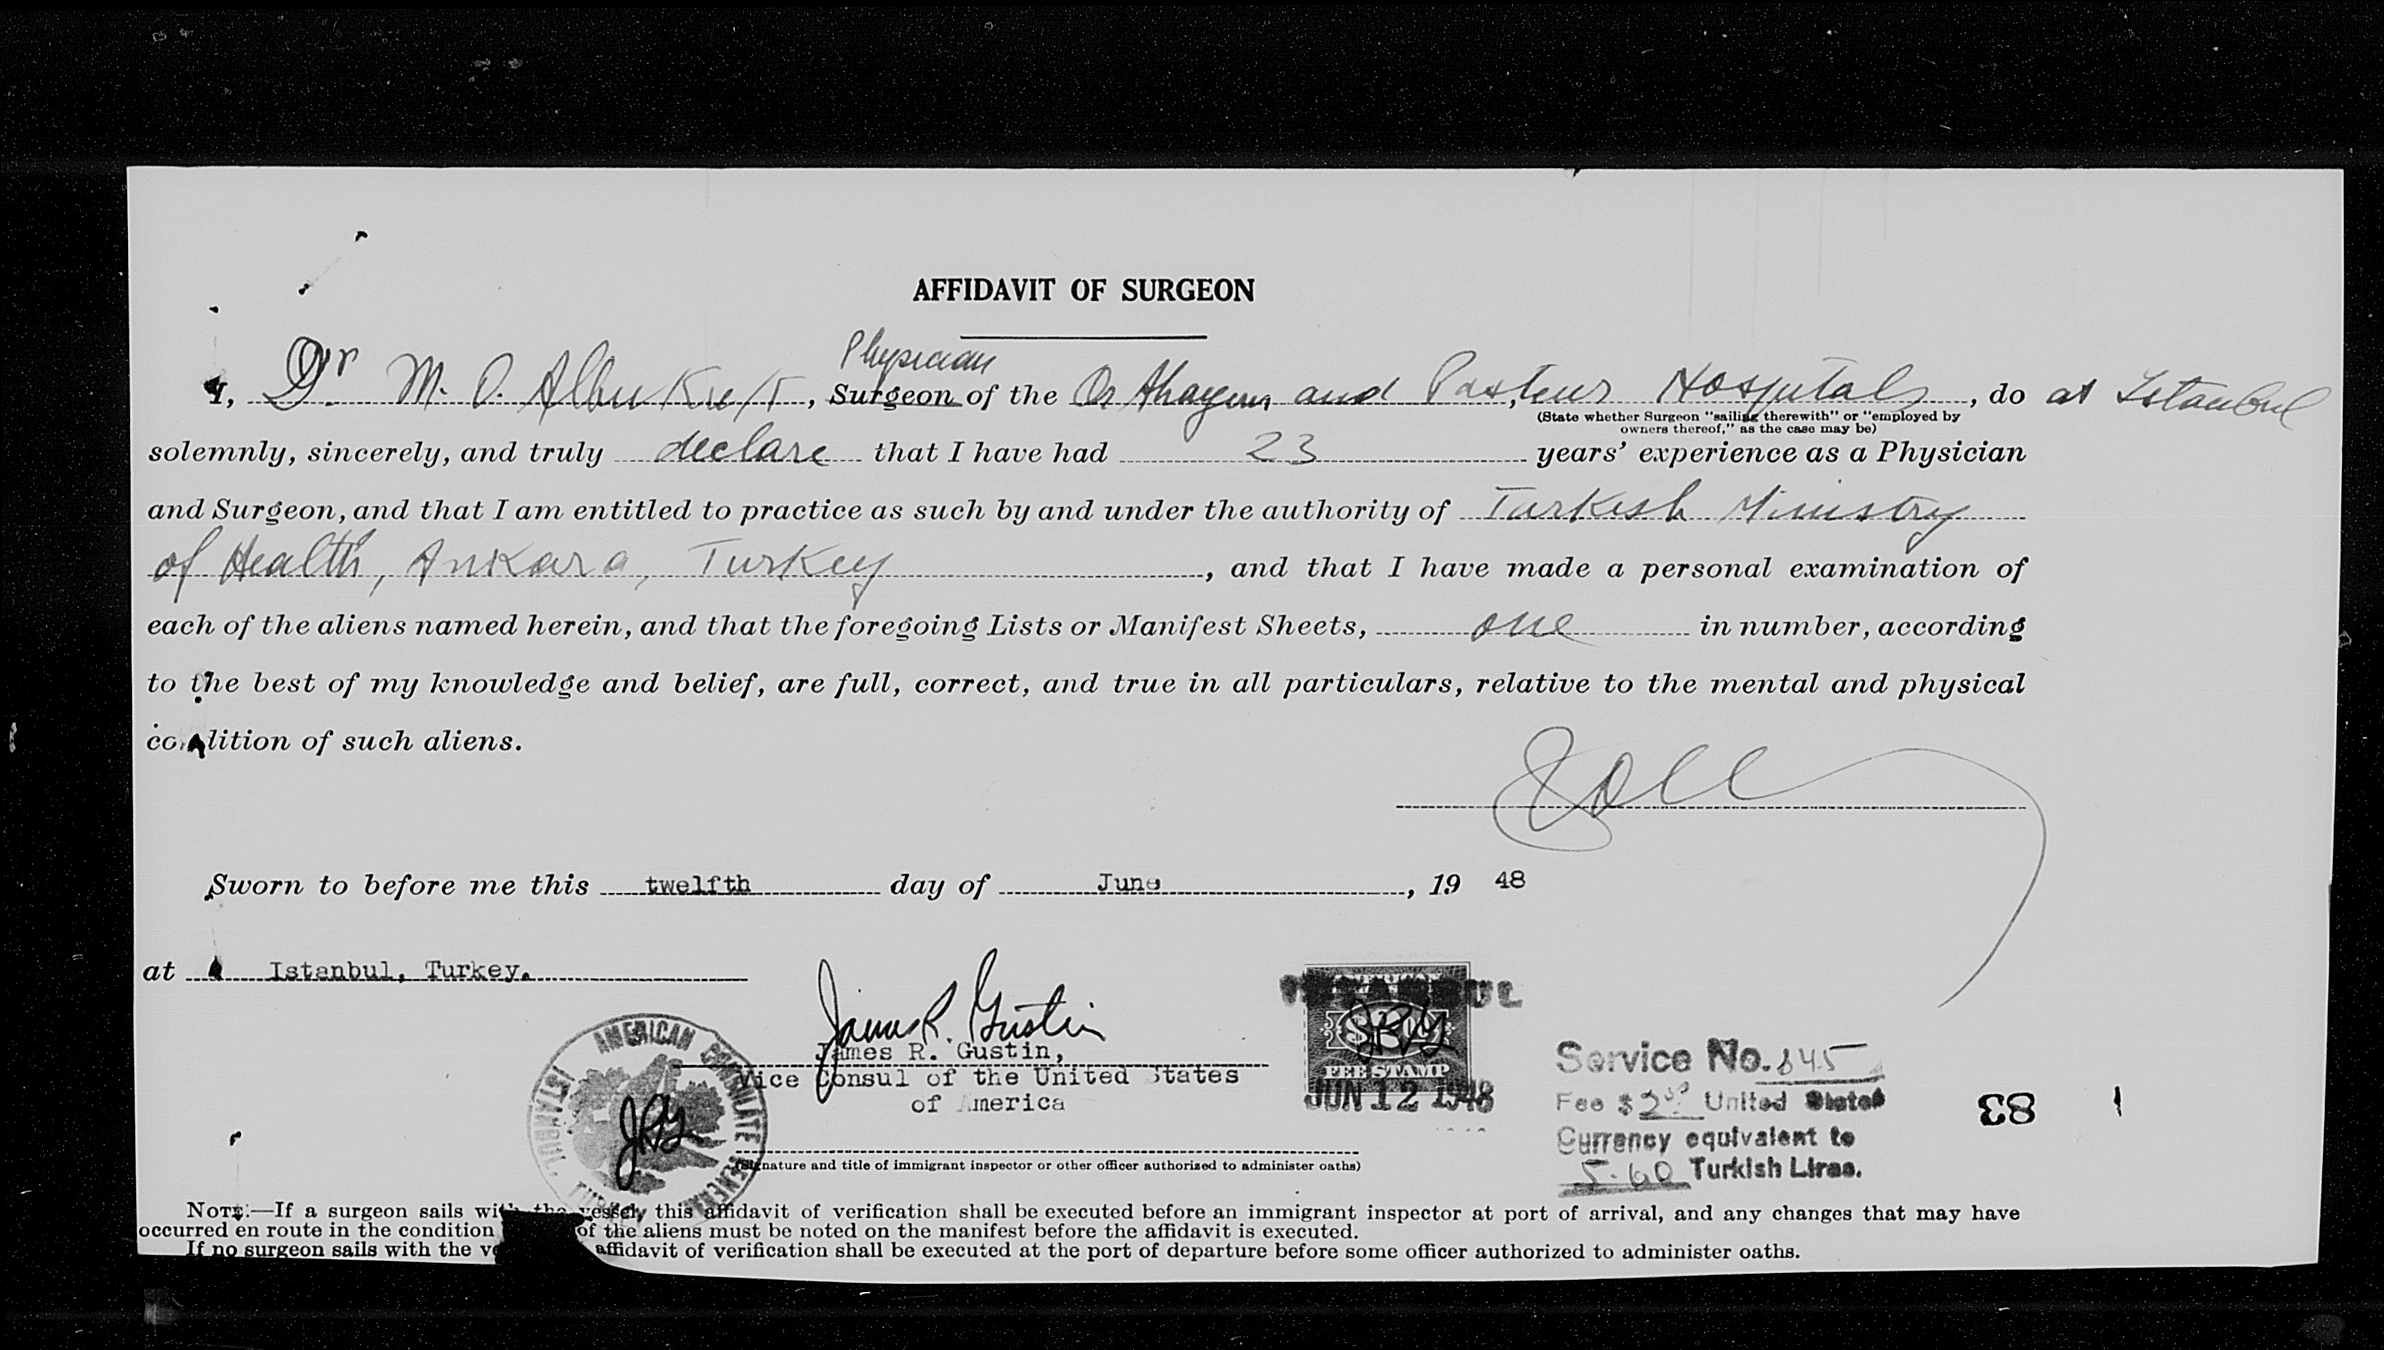 AFFIDAVIT OF SURGEON
Physician
I, Dr M. O. , Surgeon of the and Pasteur Hospitals, do at Istanbul
(State whether Surgeon "sailing therewith" or "employed by
owners thereof," as the case may be)
solemnly, sincerely, and truly declare that I have had 23 years' experience as a Physician
and Surgeon, and that I am entitled to practice as such by and under the authority of Turkish Ministry
of Health, Ankara, Turkey, and that I have made a personal examination of
each of the aliens named herein, and that the foregoing Lists or Manifest Sheets, one in number, according
to the best of my knowledge and belief, are full, correct, and true in all particulars, relative to the mental and physical
condition of such aliens.
Sworn to before me this twelfth day of June, 19 48
at Istanbul, Turkey.
James R. Gustin
James R. Gustin,
Vice Consul of the United States
of America
(Signature and title of immigrant inspector or other officer authorized to administer oaths)
AMERICAN CONSULATE GENERAL
ISTANBUL, TURKEY
JRG
ISTANBUL
AMERICAN
JRG
FEE STAMP
JUN 12 1948
Service No. 845
Fee $ 2.00 United States
Currency equivalent to
5.60 Turkish Liras.
83
NOTE.—If a surgeon sails with the vessel, this affidavit of verification shall be executed before an immigrant inspector at port of arrival, and any changes that may have
occurred en route in the condition of the aliens must be noted on the manifest before the affidavit is executed.
If no surgeon sails with the affidavit of verification shall be executed at the port of departure before some officer authorized to administer oaths.